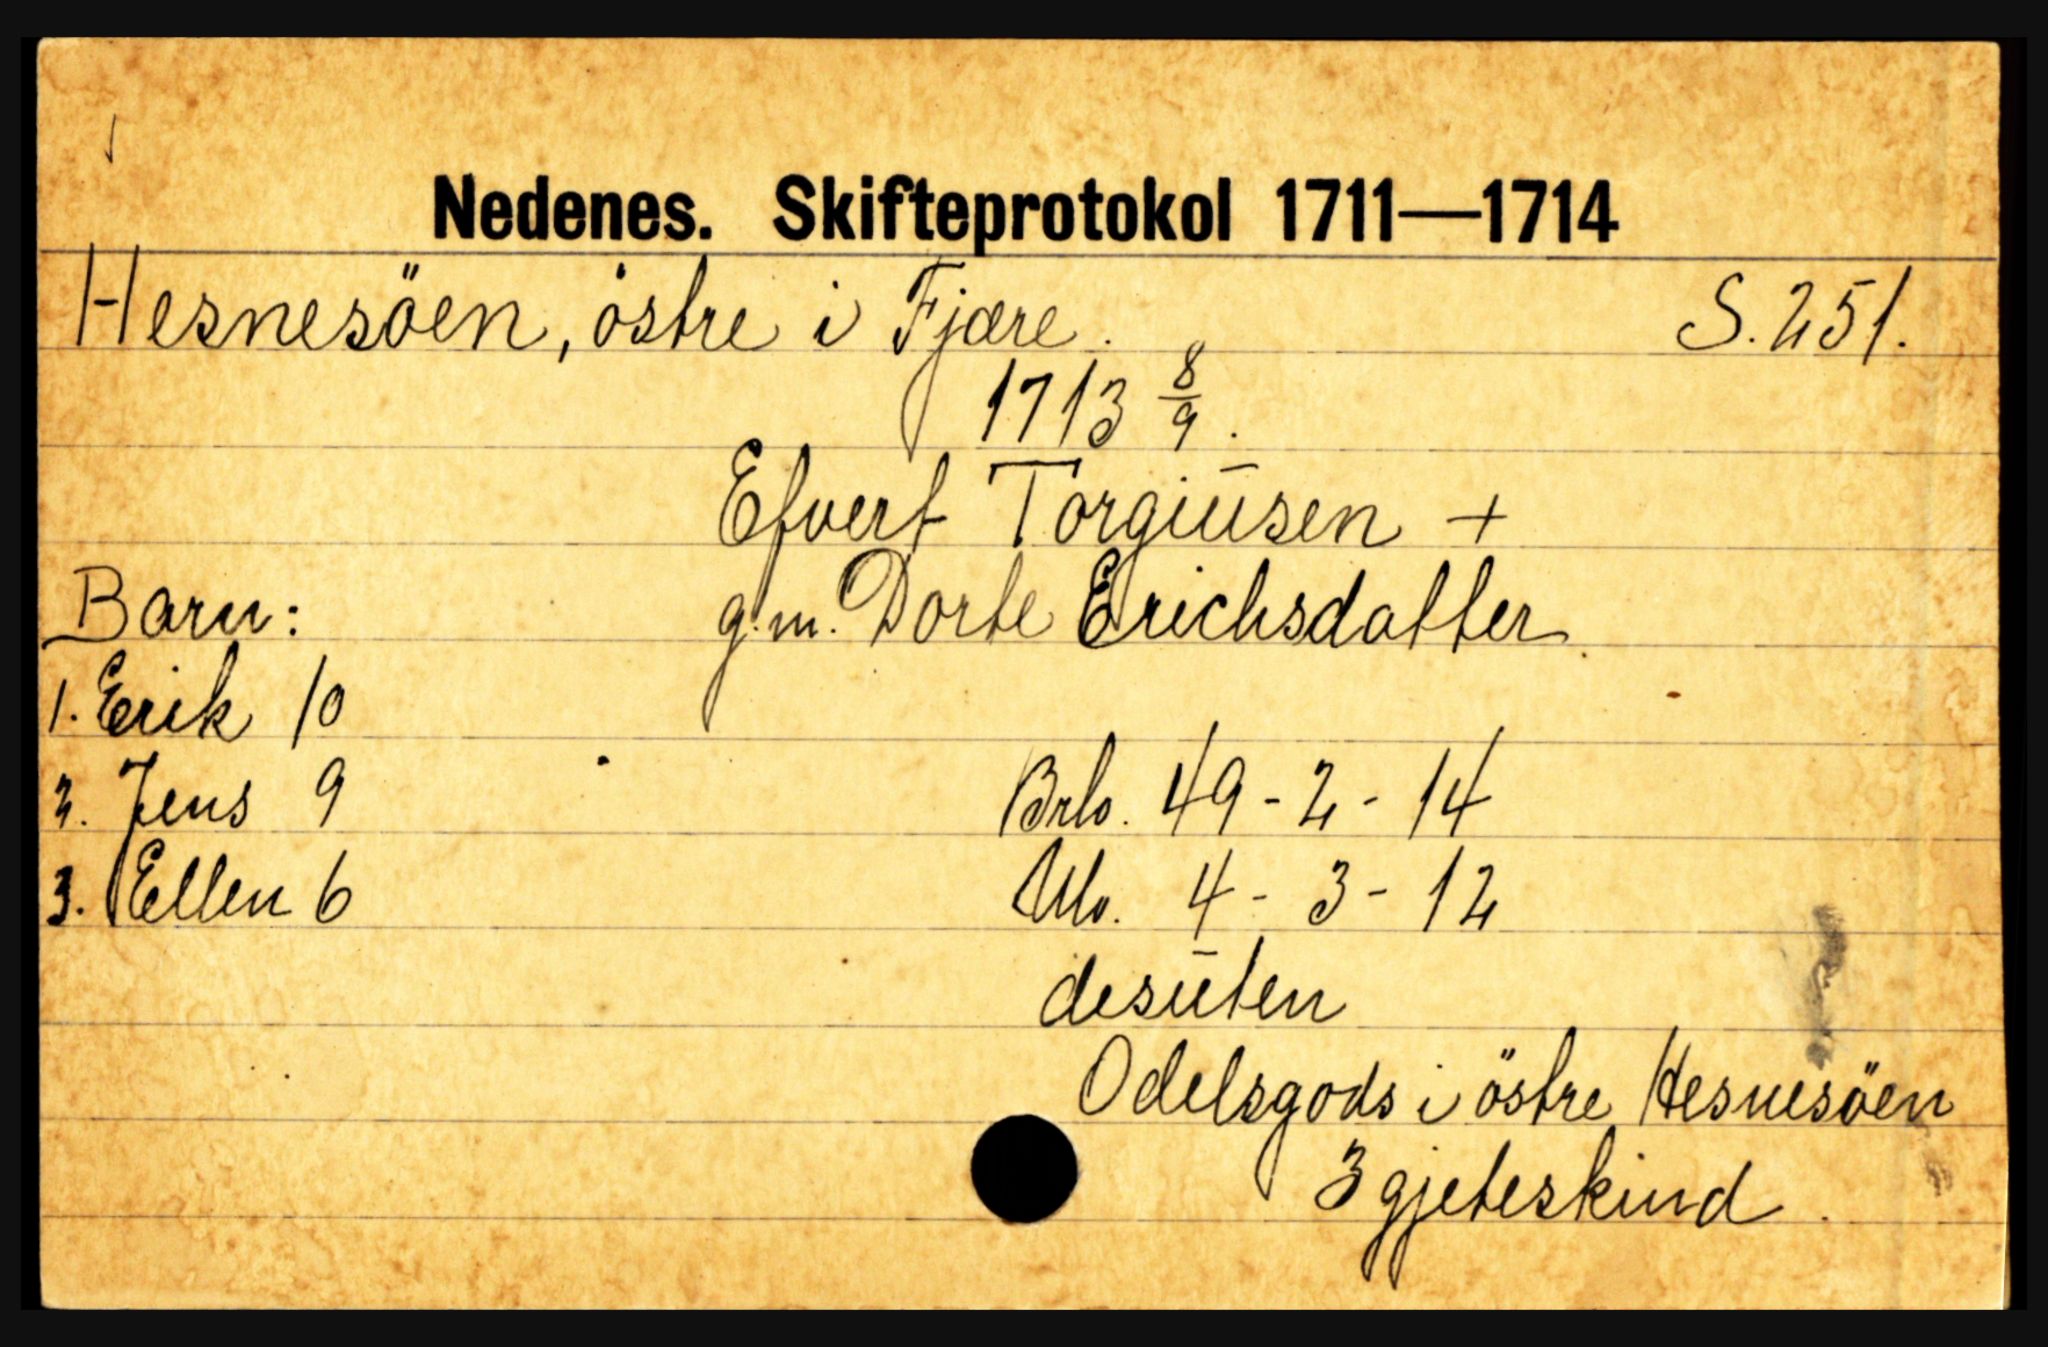 Nedenes. Skifteprotokol 1711—1714
Hesnesöen, östre i Fjære. S. 251.
1713 8/9.
Efvert Torgiūsen +
g.m. Dorte Erichsdatter
Barn:
1. Erik 10
2. Jens 9 Brlo. 49 - 2 - 14
3. Ellen 6 Ulo. 4 - 3 - 12
desūten
Odelsgods i östre Hesnesöen
3 gjeteskind.